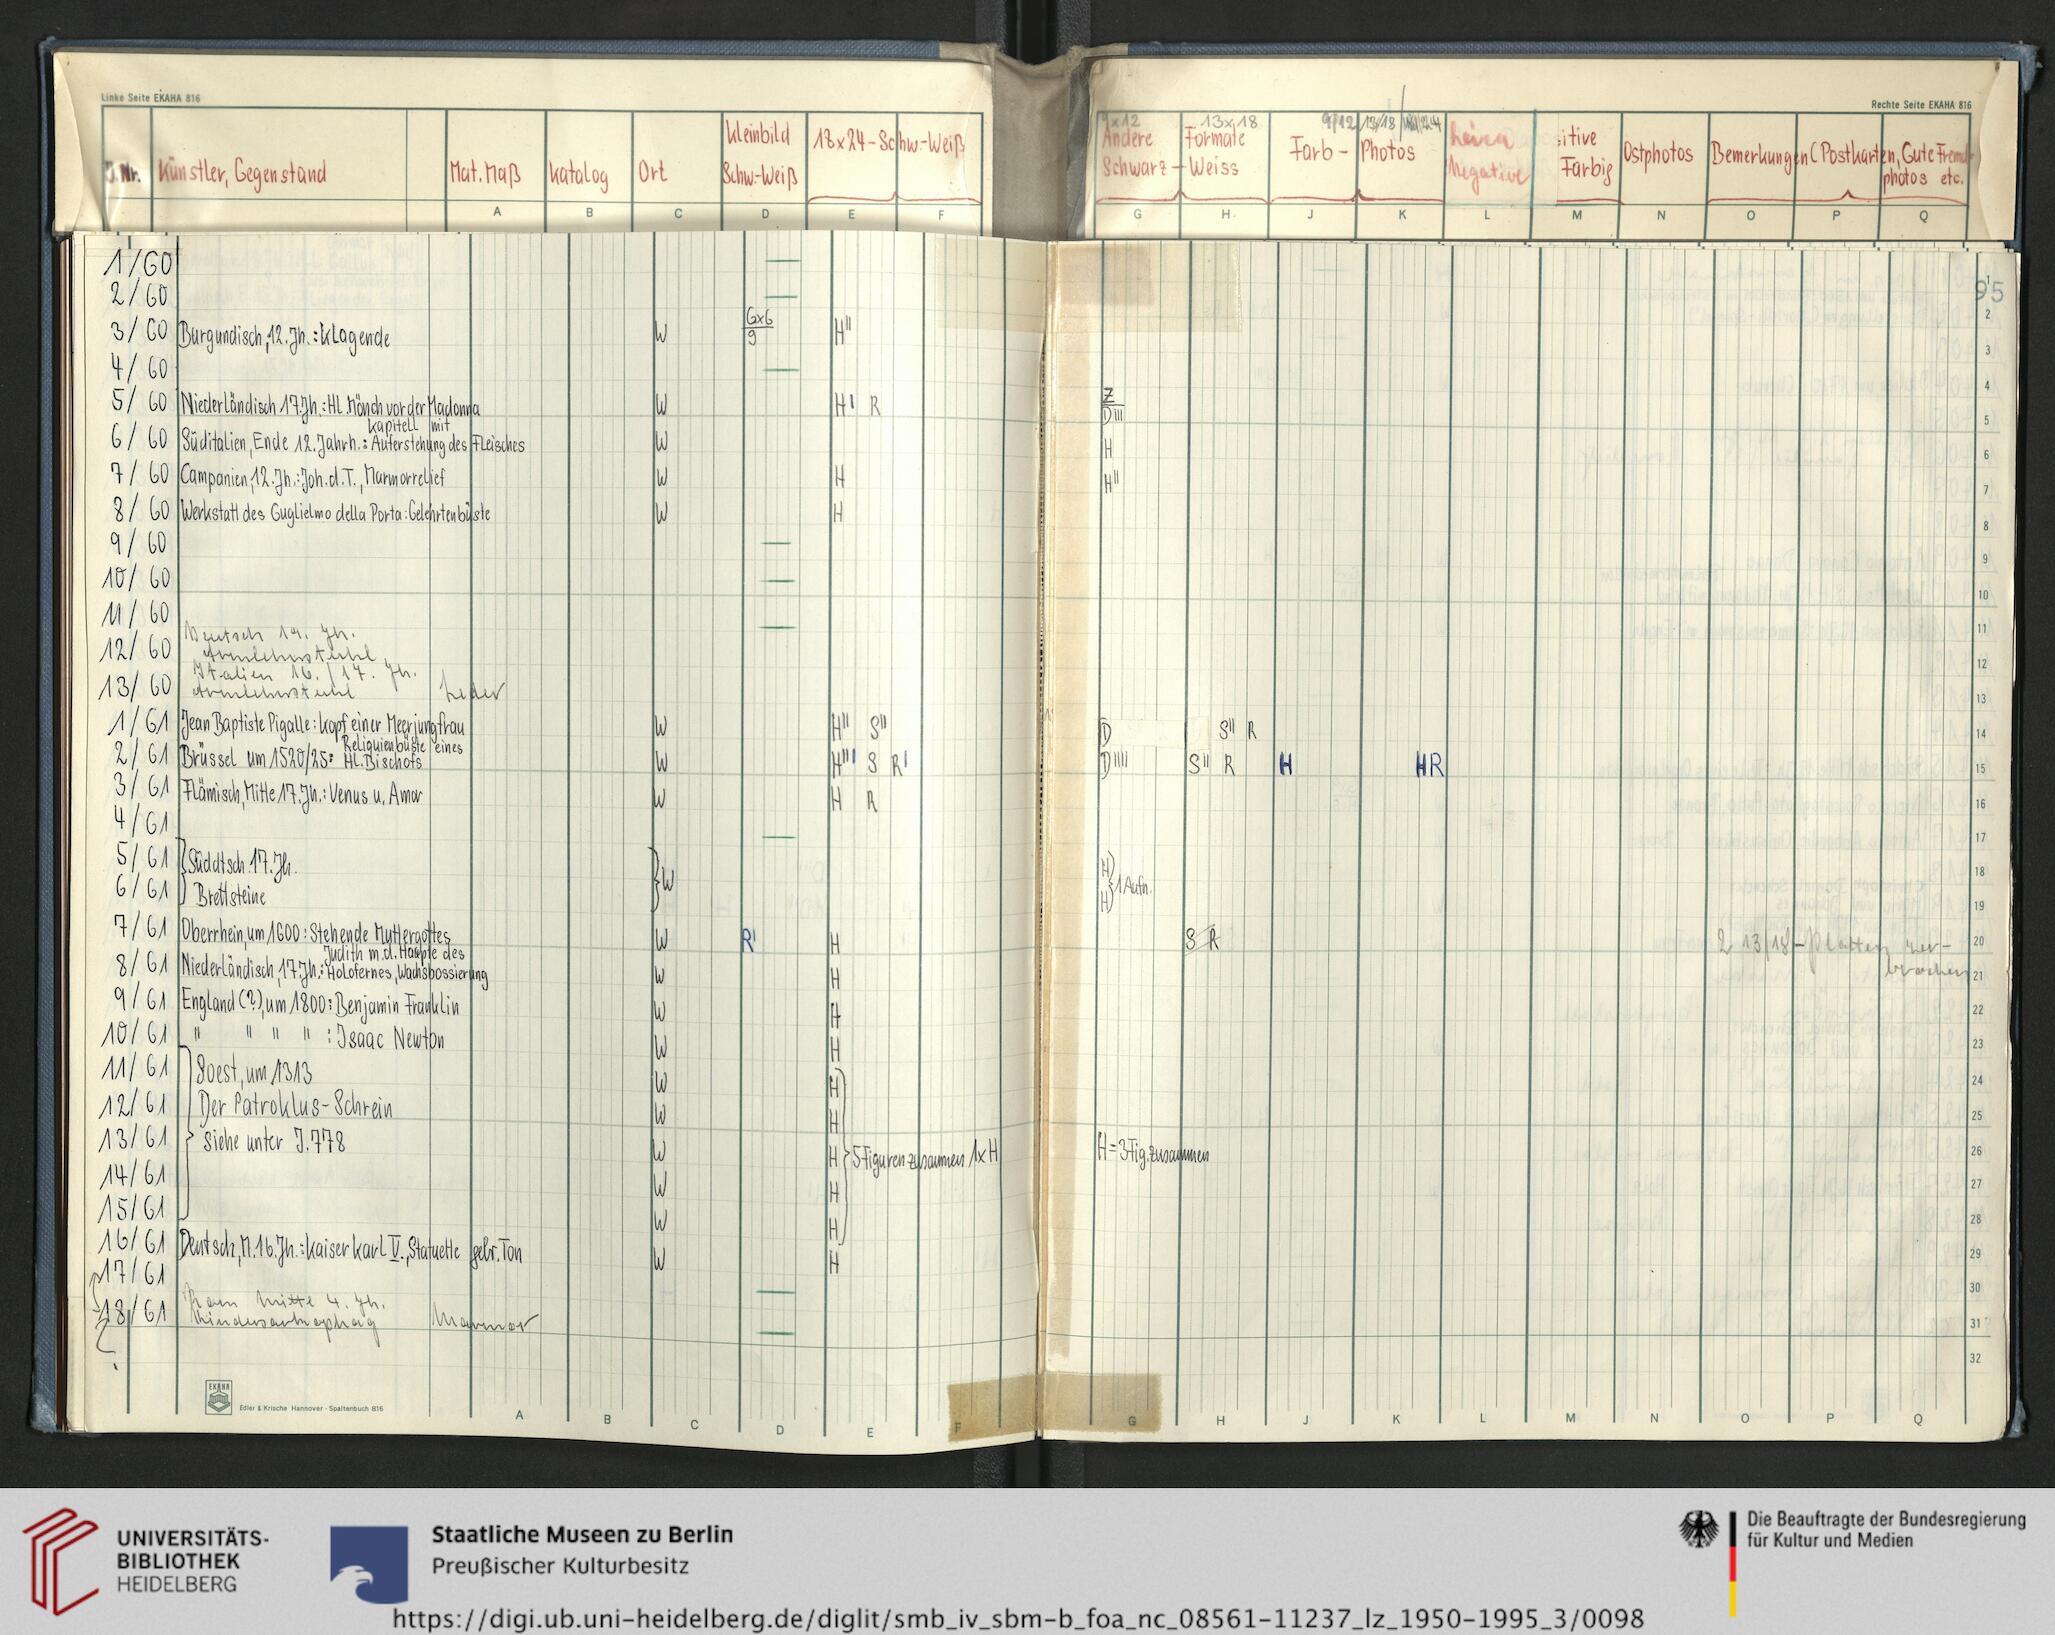 Linke Seite EKAHA 816
Rechte Seite EKAHA 816
J.Nr. Künstler, Gegenstand Mat. Maß Katalog Ort Kleinbild Schw.-Weiß 18x24-Schw.-Weiß
A B C D E F
9x12 13x18 9/12 13/18
Andere Formate Schwarz-Weiss Farb-Photos Leica Negative Farbig Ostphotos Bemerkungen (Postkarten, Gute Fremdphotos etc.
G H J K L M N O P Q
95
1/60 —
2/60 —
3/60 Burgundisch, 12. Jh.: Klagende W 6x6 9 H"
4/60 —
5/60 Niederländisch 17. Jh.: Hl. Mönch vor der Madonna W H' R Z D'''
6/60 Süditalien, Ende 12. Jahrh.: Kapitell mit Auferstehung des Fleisches W H
7/60 Campanien, 12. Jh.: Joh. d. T., Marmorrelief W H H"
8/60 Werkstatt des Guglielmo della Porta: Gelehrtenbüste W H
9/60 —
10/60 —
11/60 —
12/60 Deutsch 19. Jh. Armlehnstuhl
13/60 Italien 16./17. Jh. Armlehnstuhl Leder
1/61 Jean Baptiste Pigalle: Kopf einer Meerjungfrau W H" S" D S" R
2/61 Brüssel um 1520/25: Reliquienbüste eines Hl. Bischofs W H"' S R' D"" S" R H HR
3/61 Flämisch, Mitte 17. Jh.: Venus u. Amor W H R
4/61 —
5/61 Süddtsch. 17. Jh. W H
6/61 Brettsteine H 1 Aufn.
7/61 Oberrhein, um 1600: Stehende Muttergottes W R' H S R 2 13/18-Platten zerbrochen
8/61 Niederländisch, 17. Jh.: Judith m. d. Haupte des Holofernes, Wachsbossierung W H
9/61 England (?), um 1800: Benjamin Franklin W H
10/61 " " " " : Isaac Newton W H
11/61 Soest, um 1313 W H
12/61 Der Patroklus-Schrein W H
13/61 siehe unter J. 778 W H 5 Figuren zusammen 1xH H = 3 Fig. zusammen
14/61 W H
15/61 W H
16/61 Deutsch, M. 16. Jh.: Kaiser Karl V., Statuette gebr. Ton W H
17/61 —
18/61 Rom Mitte 4. Jh. Kindersarkophag Marmor —
1
2
3
4
5
6
7
8
9
10
11
12
13
14
15
16
17
18
19
20
21
22
23
24
25
26
27
28
29
30
31
32
EKAHA
Edler & Krische Hannover · Spaltenbuch 816
A B C D E F
G H J K L M N O P Q
UNIVERSITÄTS-
BIBLIOTHEK
HEIDELBERG
Staatliche Museen zu Berlin
Preußischer Kulturbesitz
Die Beauftragte der Bundesregierung
für Kultur und Medien
https://digi.ub.uni-heidelberg.de/diglit/smb_iv_sbm-b_foa_nc_08561-11237_lz_1950-1995_3/0098